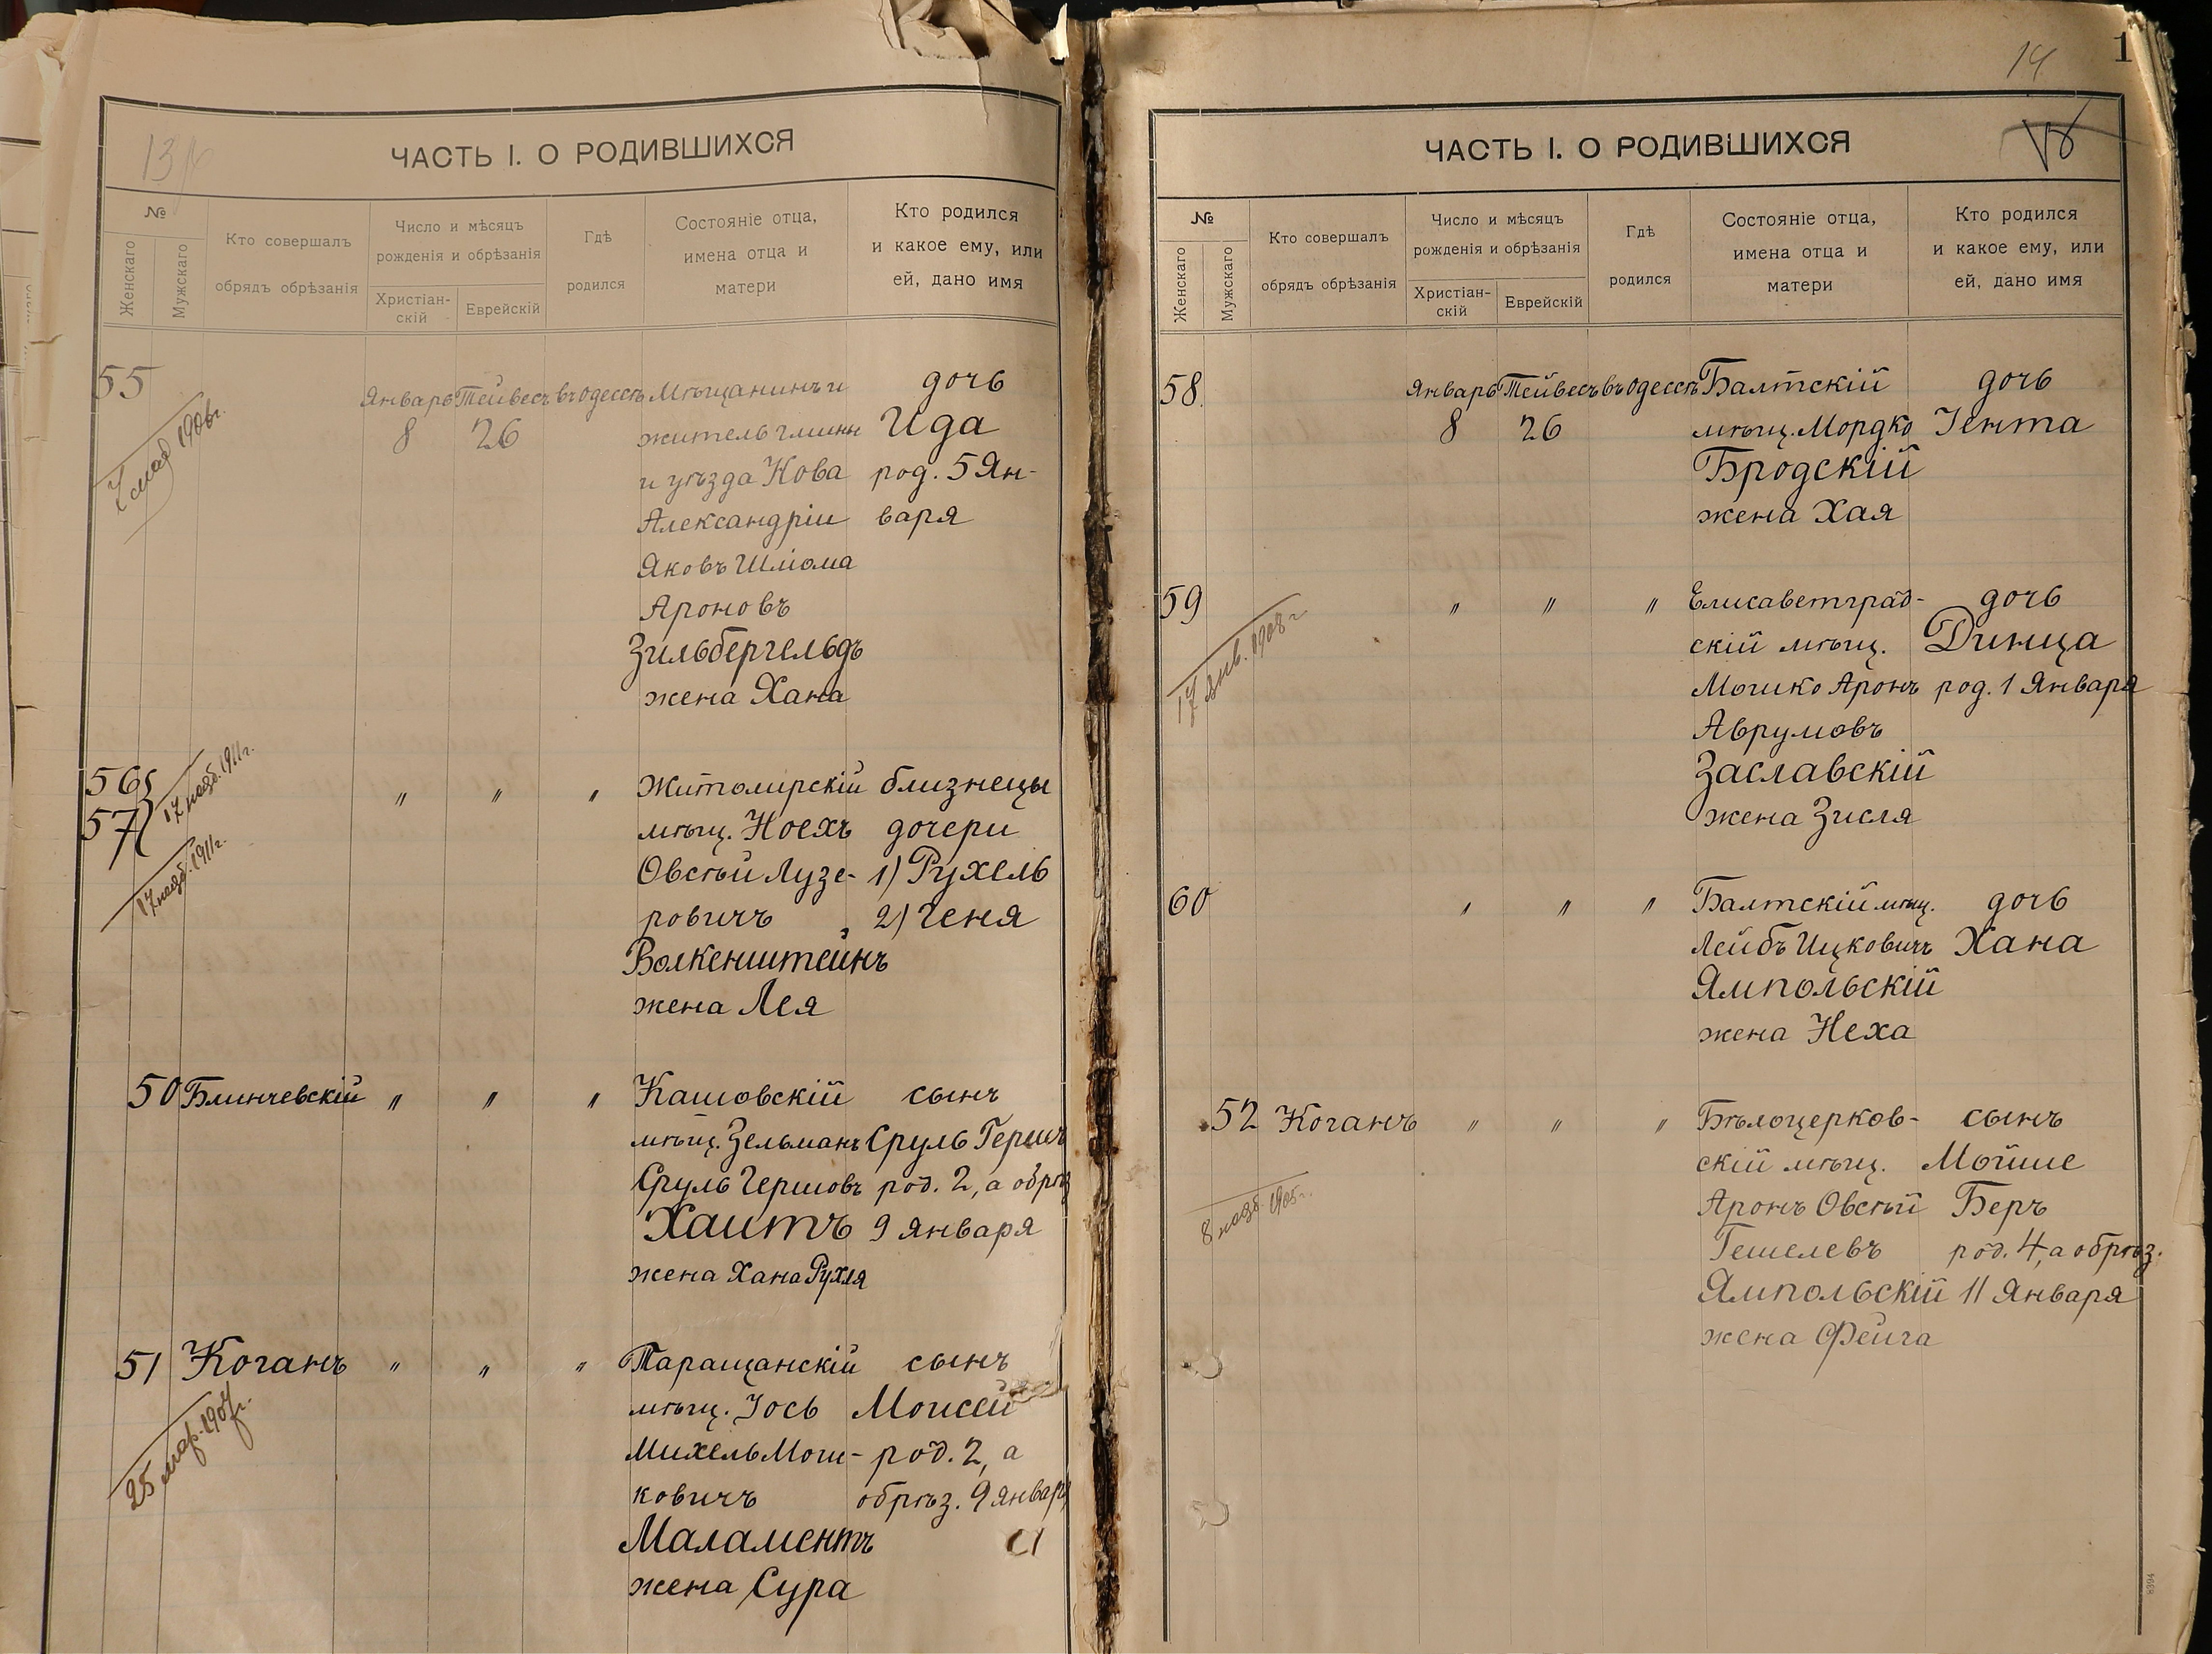 13
ЧАСТЬ I. О РОДИВШИХСЯ
№
Женскаго
Мужскаго
Кто совершалъ
обрядъ обрѣзанія
Число и мѣсяцъ
рожденія и обрѣзанія
Христіан-
скій
Еврейскій
Гдѣ
родился
Состояніе отца,
имена отца и
матери
Кто родился
и какое ему, или
ей, дано имя
55 Январь Тейвесъ въ Одессѣ Мѣщанинъ и дочь
8 26 житель гмины Ида
и уѣзда Кова род. 5 Ян-
Александріи варя
Яковъ Шлiома
Ароновъ
Зильбергельдъ
жена Хана
1906г.
56 " " " Житомирскій близнецы
57 мѣщ. Ноехъ дочери
Овсѣй Лузе- 1) Рухель
ровичъ 2) Геня
Волкенштейнъ
жена Лея
17 нояб. 1911г.
17 нояб. 1911г.
50 Блинчевскій " " " Кашовскій сынъ
мѣщ. Зельманъ Сруль Гершъ
Сруль Гершовъ род. 2, а обрѣз
Хаитъ 9 Января
жена Хана Рухля
51 Коганъ " " " Таращанскій сынъ
мѣщ. Іось Моисей
Михель Мош- род. 2, а
ковичъ обрѣз. 9 Январ
Маламентъ
жена Сура
25 мар. 1907г.
14
1
ЧАСТЬ I. О РОДИВШИХСЯ
№
Женскаго
Мужскаго
Кто совершалъ
обрядъ обрѣзанія
Число и мѣсяцъ
рожденія и обрѣзанія
Христіан-
скій
Еврейскій
Гдѣ
родился
Состояніе отца,
имена отца и
матери
Кто родился
и какое ему, или
ей, дано имя
58 Январь Тейвесъ въ Одессѣ Балтскій дочь
8 26 мѣщ. Мордко Іента
Бродскій
жена Хая
59 " " " Елисаветград- дочь
скій мѣщ. Динца
Мошко Аронъ род. 1 Января
Аврумовъ
Заславскій
жена Зисля
17 янв. 1908г
60 " " " Балтскій мѣщ. дочь
Лейбъ Ицковичъ Хана
Ямпольскій
жена Неха
52 Коганъ " " " Бѣлоцерков- сынъ
скій мѣщ. Мойше
Аронъ Овсѣй Беръ
Гешелевъ род. 4, а обрѣз.
Ямпольскій 11 Января
жена Фейга
8 нояб. 1905г.
8394